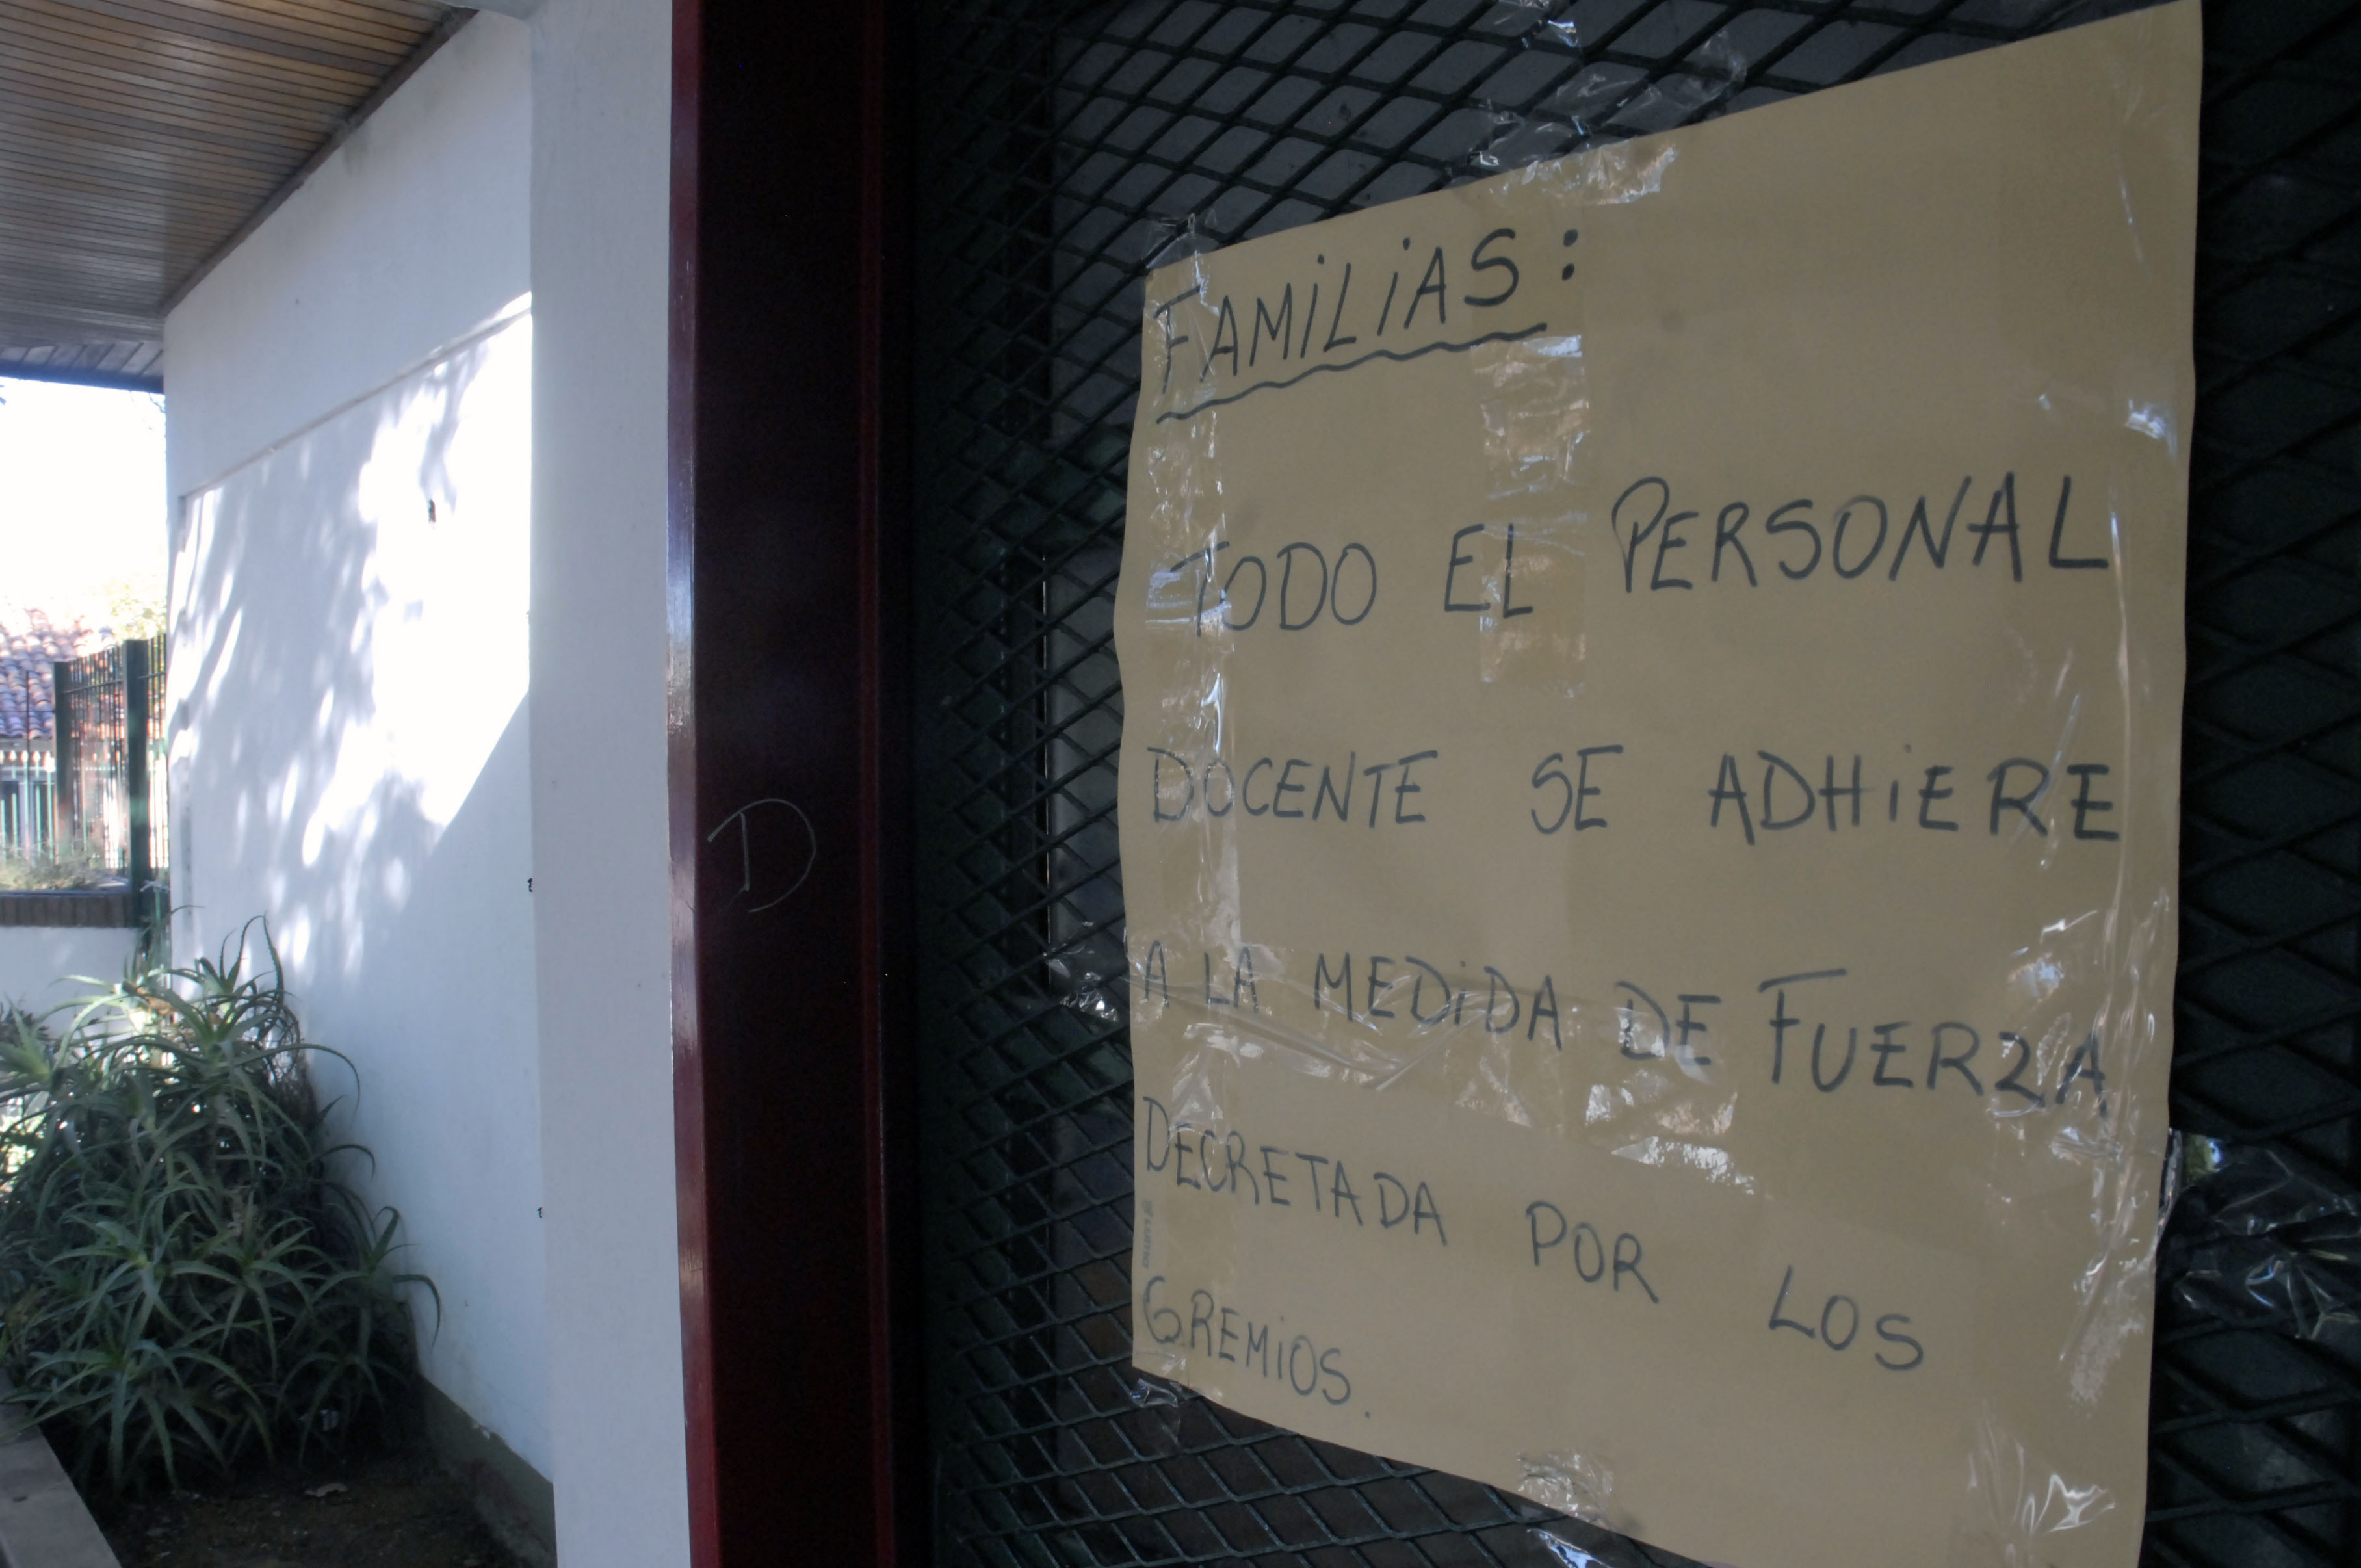 FAMILIAS:
TODO EL PERSONAL
DOCENTE SE ADHIERE
A LA MEDIDA DE FUERZA
DECRETADA POR LOS
GREMIOS.
D